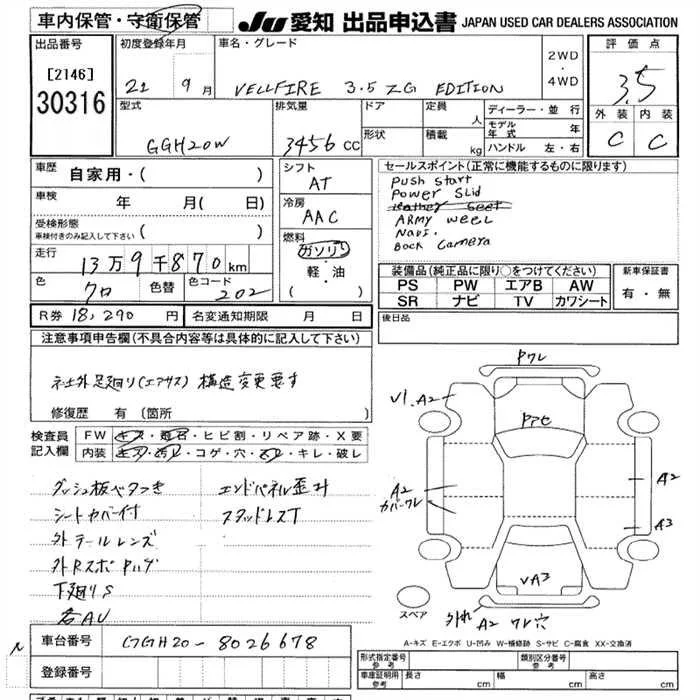 車内保管・守衛保管
JU 愛知 出品申込書 JAPAN USED CAR DEALERS ASSOCIATION
出品番号
[2146]
30316
初度登録年月
21 9月
車名・グレード
VELLFIRE 3.5 ZG EDITION
2WD
・
4WD
評価点
3.5
外装 内装
C C
型式
GGH20W
排気量
3456 CC
ドア
形状
定員 人
積載 kg
ディーラー・並行
モデル年式 年
ハンドル 左・右
車歴 自家用・( )
車検 年 月( 日)
受検形態
車検付きのみ記入して下さい ( )
走行
13万9千870km
色 クロ 色替 色コード 202
R券 18,290 円 名変通知期限 月 日
シフト
AT
冷房
AAC
燃料
ガソリン
・
軽・油
( )
セールスポイント(正常に機能するものに限ります)
Push Start
Power Slid
Leather Seet
ARMY weel
Navi.
Back Camera
装備品(純正品に限り○をつけてください)
PS PW エアB AW
SR ナビ TV カワシート
新車保証書
有・無
後日品
注意事項申告欄(不具合内容等は具体的に記入して下さい)
社外足廻り(エアサス) 構造変更要す
修復歴 有 (箇所 )
検査員記入欄
FW キズ・飛石・ヒビ割・リペア跡・X要
内装 キズ・汚レ・コゲ・穴・スレ・キレ・破レ
ダッシュ板ベタつき
シートカバー付
外テールレンズ
外Rスポ
下廻りS
名AU
エンドパネル歪み
スタッドレスT
車台番号 GGH20-8026678
登録番号
Pワレ
Pアセ
V1.A2
A2
カバーワレ
A2
A3
VA3
外れ A2 ワレ穴
スペア
A-キズ E-エクボ U-凹み W-補修跡 S-サビ C-腐食 XX-交換済
形式指定番号 参考
類別区分番号 参考
車庫証明用 参考 長さ cm 幅 cm 高さ cm